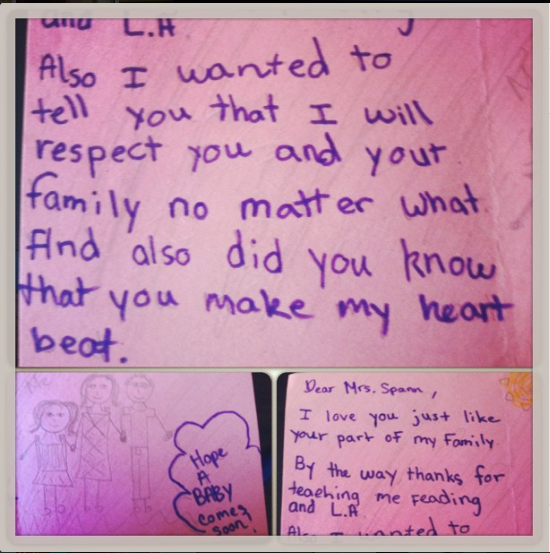 and L.A
Also I wanted to
tell you that I will
respect you and your
family no matter what.
And also did you know
that you make my heart
beat.
Hope
A
BABY
comes
soon!
Dear Mrs. Spann,
I love you just like
your part of my family
By the way thanks for
teaching me reading
and L.A
Also I wanted to